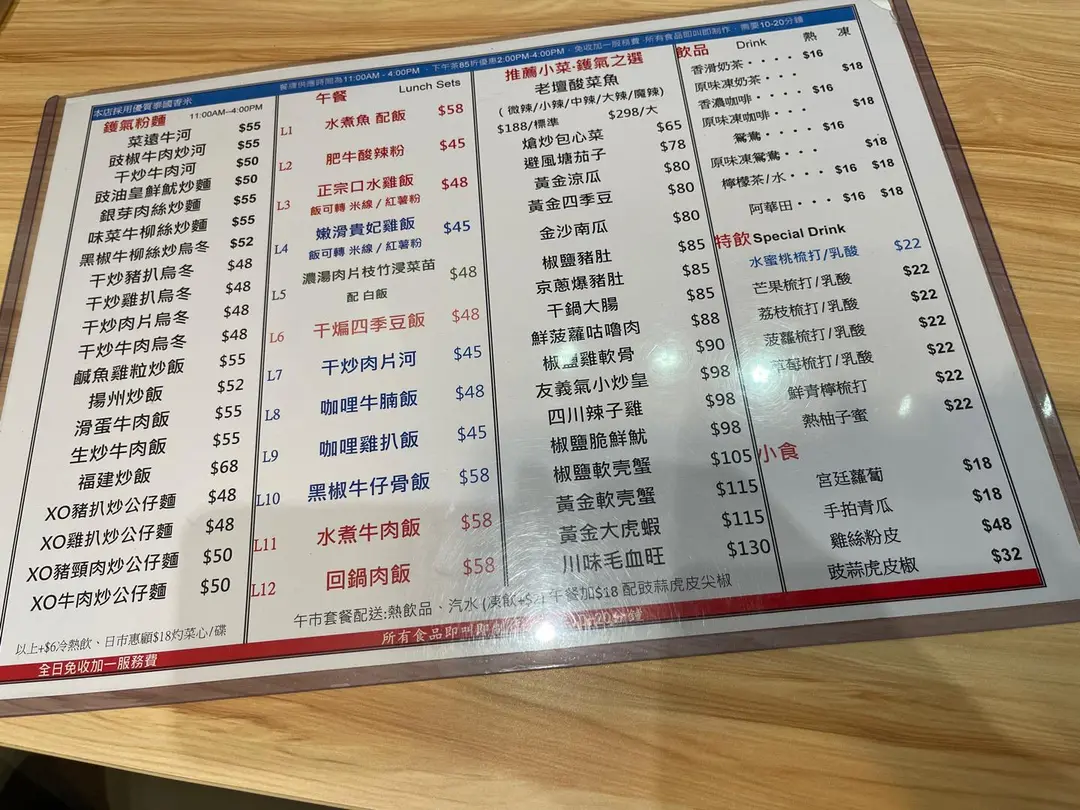 本店採用優質泰國香米
餐廳供應時間為11:00AM - 4:00PM，下午茶85折優惠2:00PM-4:00PM，免收加一服務費 所有食品即叫即制作，需要10-20分鐘
11:00AM--4:00PM
鑊氣粉麵
菜遠牛河 $55
豉椒牛肉炒河 $55
干炒牛肉河 $50
豉油皇鮮魷炒麵 $50
銀芽肉絲炒麵 $55
味菜牛柳絲炒麵 $55
黑椒牛柳絲炒烏冬 $52
干炒豬扒烏冬 $48
干炒雞扒烏冬 $48
干炒肉片烏冬 $48
干炒牛肉烏冬 $48
鹹魚雞粒炒飯 $55
揚州炒飯 $52
滑蛋牛肉飯 $55
生炒牛肉飯 $55
福建炒飯 $68
XO豬扒炒公仔麵 $48
XO雞扒炒公仔麵 $48
XO豬頸肉炒公仔麵 $50
XO牛肉炒公仔麵 $50
以上+$6冷熱飲、日市惠顧$18灼菜心/碟
午餐 Lunch Sets
L1 水煮魚 配飯 $58
L2 肥牛酸辣粉 $45
L3 正宗口水雞飯 $48
飯可轉 米線 / 紅薯粉
L4 嫩滑貴妃雞飯 $45
飯可轉 米線 / 紅薯粉
L5 濃湯肉片枝竹浸菜苗 $48
配 白飯
L6 干煸四季豆飯 $48
L7 干炒肉片河 $45
L8 咖哩牛腩飯 $48
L9 咖哩雞扒飯 $45
L10 黑椒牛仔骨飯 $58
L11 水煮牛肉飯 $58
L12 回鍋肉飯 $58
午市套餐配送:熱飲品、汽水 (凍飲+$2) 午餐加$18 配豉蒜虎皮尖椒
推薦小菜·鑊氣之選
老壇酸菜魚
( 微辣/小辣/中辣/大辣/魔辣)
$188/標準 $298/大
熗炒包心菜 $65
避風塘茄子 $78
黃金涼瓜 $80
黃金四季豆 $80
金沙南瓜 $80
椒鹽豬肚 $85
京蔥爆豬肚 $85
干鍋大腸 $85
鮮菠蘿咕嚕肉 $88
椒鹽雞軟骨 $90
友義氣小炒皇 $98
四川辣子雞 $98
椒鹽脆鮮魷 $98
椒鹽軟壳蟹 $105
黃金軟壳蟹 $115
黃金大虎蝦 $115
川味毛血旺 $130
飲品 Drink 熱 凍
香滑奶茶・・・・ $16
原味凍奶茶・・・・ $18
香濃咖啡・・・・ $16
原味凍咖啡・・・ $18
鴛鴦・・・・ $16
原味凍鴛鴦・・・ $18
檸檬茶/水・・・ $16 $18
阿華田・・・ $16 $18
特飲 Special Drink
水蜜桃梳打/乳酸 $22
芒果梳打/乳酸 $22
荔枝梳打/乳酸 $22
菠蘿梳打/乳酸 $22
草莓梳打/乳酸 $22
鮮青檸梳打 $22
熱柚子蜜 $22
小食
宮廷蘿蔔 $18
手拍青瓜 $18
雞絲粉皮 $48
豉蒜虎皮椒 $32
全日免收加一服務費
所有食品即叫即制 20分鐘